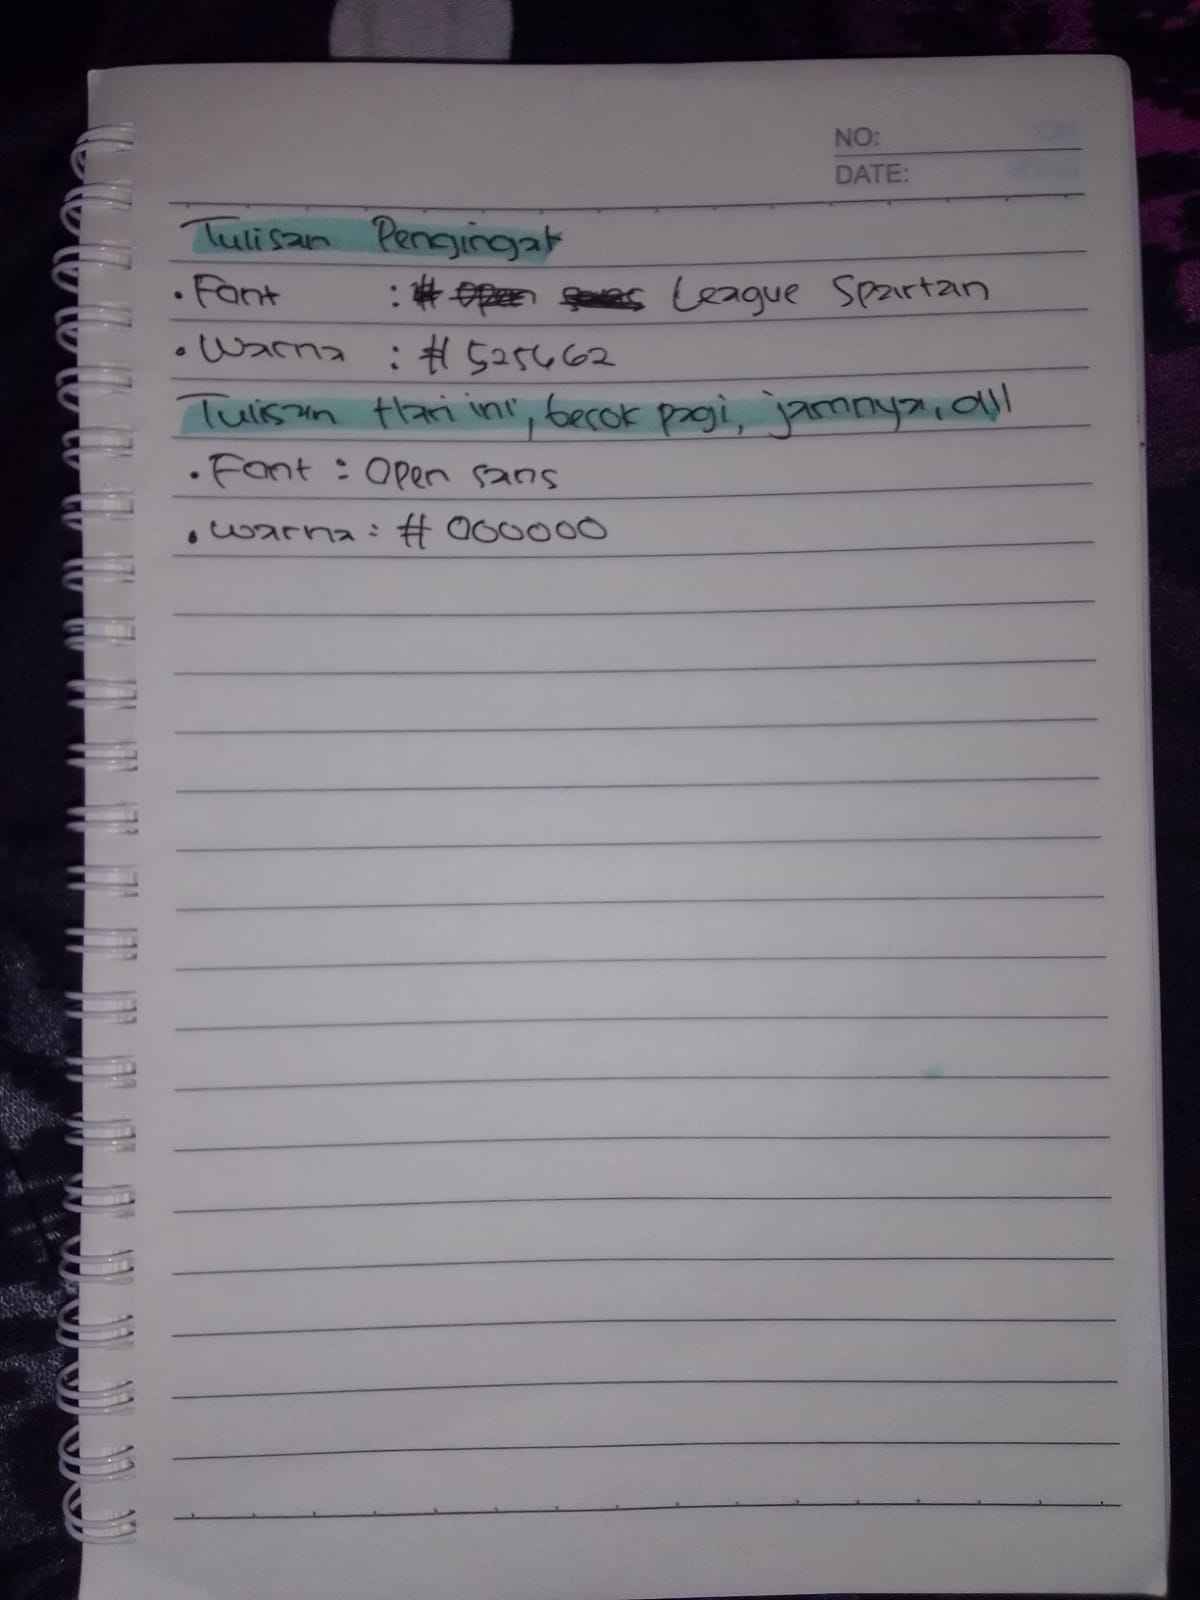 NO:
DATE:
Tulisan Pengingat
• Font : # Open sans League Spartan
• Warna : # 525462
Tulisan Hari ini, besok pagi, jamnya, dll
• Font : Open sans
• Warna : # 000000